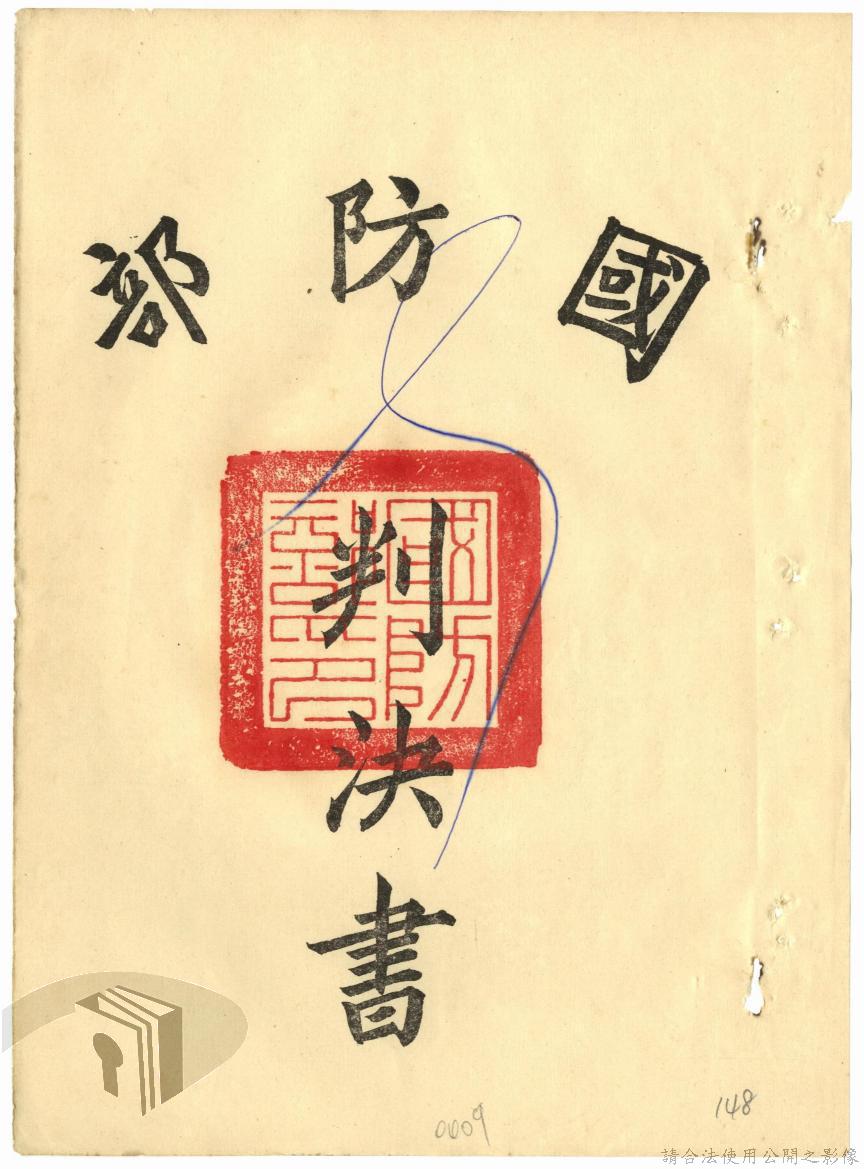 國防部
判決書
國防部印
0009
148
請合法使用公開之影像